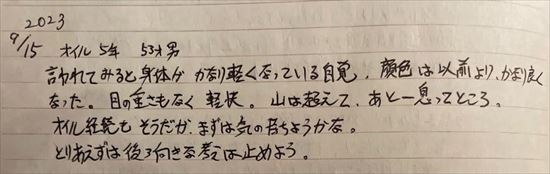 2023
9/15 オイル5年 53才男
言われてみると身体が かなり軽くなっている自覚。顔色は以前より、かなり良く
なった。目の重さもなく 軽快。山は超えて、あと一息ってところ。
オイル継続も そうだが、まずは気の持ちようかな。
とりあえずは後ろ向きな考えは止めよう。